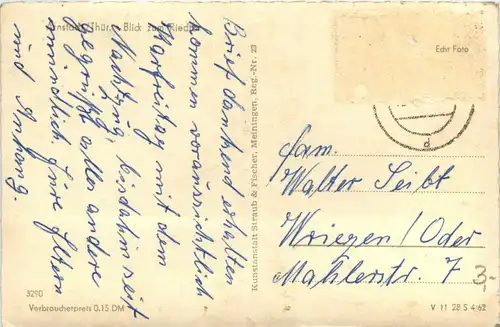 Arnstadt/Thür. - Blick zum Riedtor
Brief dankend erhalten
kommen voraussichtlich
Karfreitag mit dem
Nachtzug, bis dahin seit
gegrüßt alles andere
mündlich. Eure Eltern
und Anhang.
Kunstanstalt Straub & Fischer, Meiningen, Reg.-Nr. 23
Echt Foto
d
Fam.
Walter Seibt
Wriezen/Oder
Mahlerstr. 7
3,-
3290
Verbraucherpreis 0,15 DM
V 11 28 S 4/62